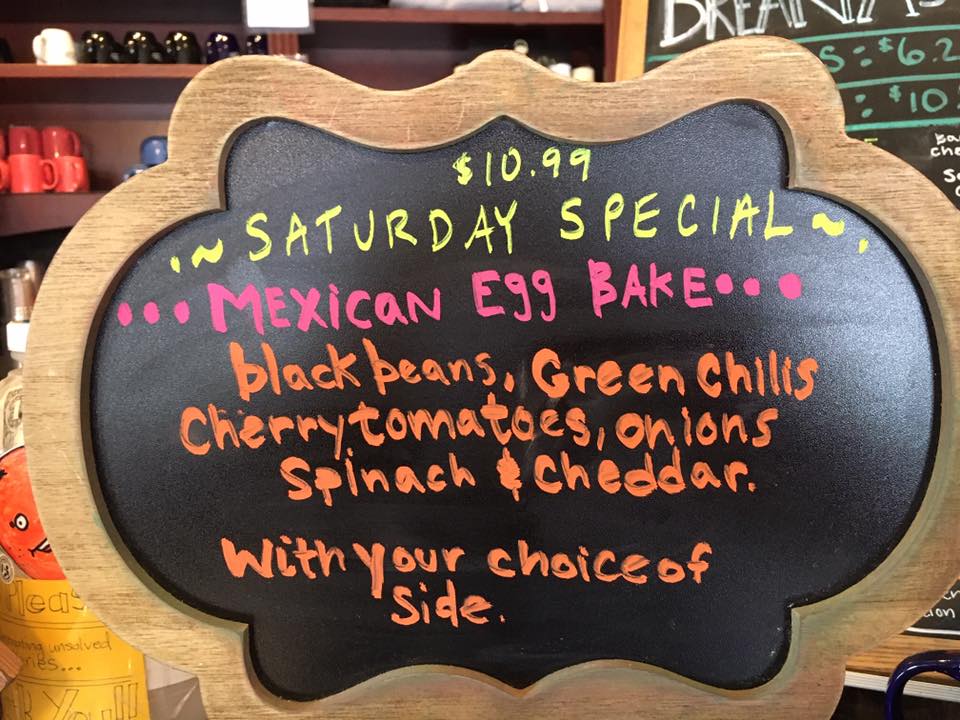 $10.99
~SATURDAY SPECIAL~
MEXiCAN Egg BAKE
black beans, Green Chilis
Cherry tomatoes, onions
Spinach & Cheddar.
With your choice of
Side.
BREAKFAS
S: $6.2
: $10
Ba
che
Pleas
unsolved
ries...
k You!!